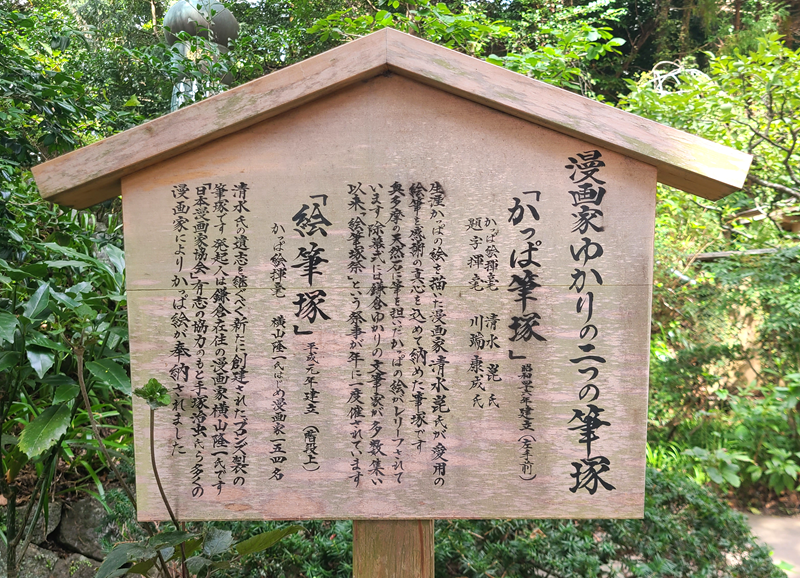 漫画家ゆかりの二つの筆塚
「かっぱ筆塚」
昭和四十六年建立(左手前)
かっぱ絵揮毫 清水 崑氏
題字揮毫 川端康成氏
生涯かっぱの絵を描いた漫画家清水崑氏が愛用の
絵筆を感謝の意を込めて納めた筆塚です
奥多摩の天然石に筆を担いだかっぱの絵がレリーフされて
います 除幕式には鎌倉ゆかりの文筆家が多数集い
以来「絵筆塚祭」という祭事が年に一度催されています
「絵筆塚」
平成元年建立(階段上)
かっぱ絵揮毫 横山隆一氏はじめ漫画家一五四名
清水氏の遺志を継ぐべく新たに創建されたブロンズ製の
筆塚です 発起人は鎌倉在住の漫画家横山隆一氏です
「日本漫画家協会」有志の協力のもと手塚治虫氏ら多くの
漫画家によりかっぱ絵が奉納されました